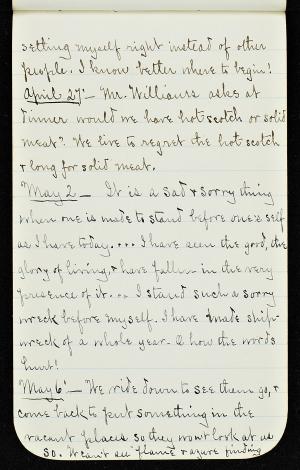 setting myself right instead of other
people. I know better where to begin!
April 27 - Mr. Williams asks at
dinner would we have hot scotch or solid
meat? We live to regret the hot scotch
& long for solid meat.
May 2 - It is a sad & sorry thing
when one is made to stand before one's self
as I have today.... I have seen the good, the
glory of living, & have fallen in the very
presence of it... I stand such a sorry
wreck before myself. I have made ship-
wreck of a whole year. O how the words
hurt!
May 6 - We ride down to see them go, &
come back to put something in the
vacant places so they won't look at us
so. We can't see flame & azure finding